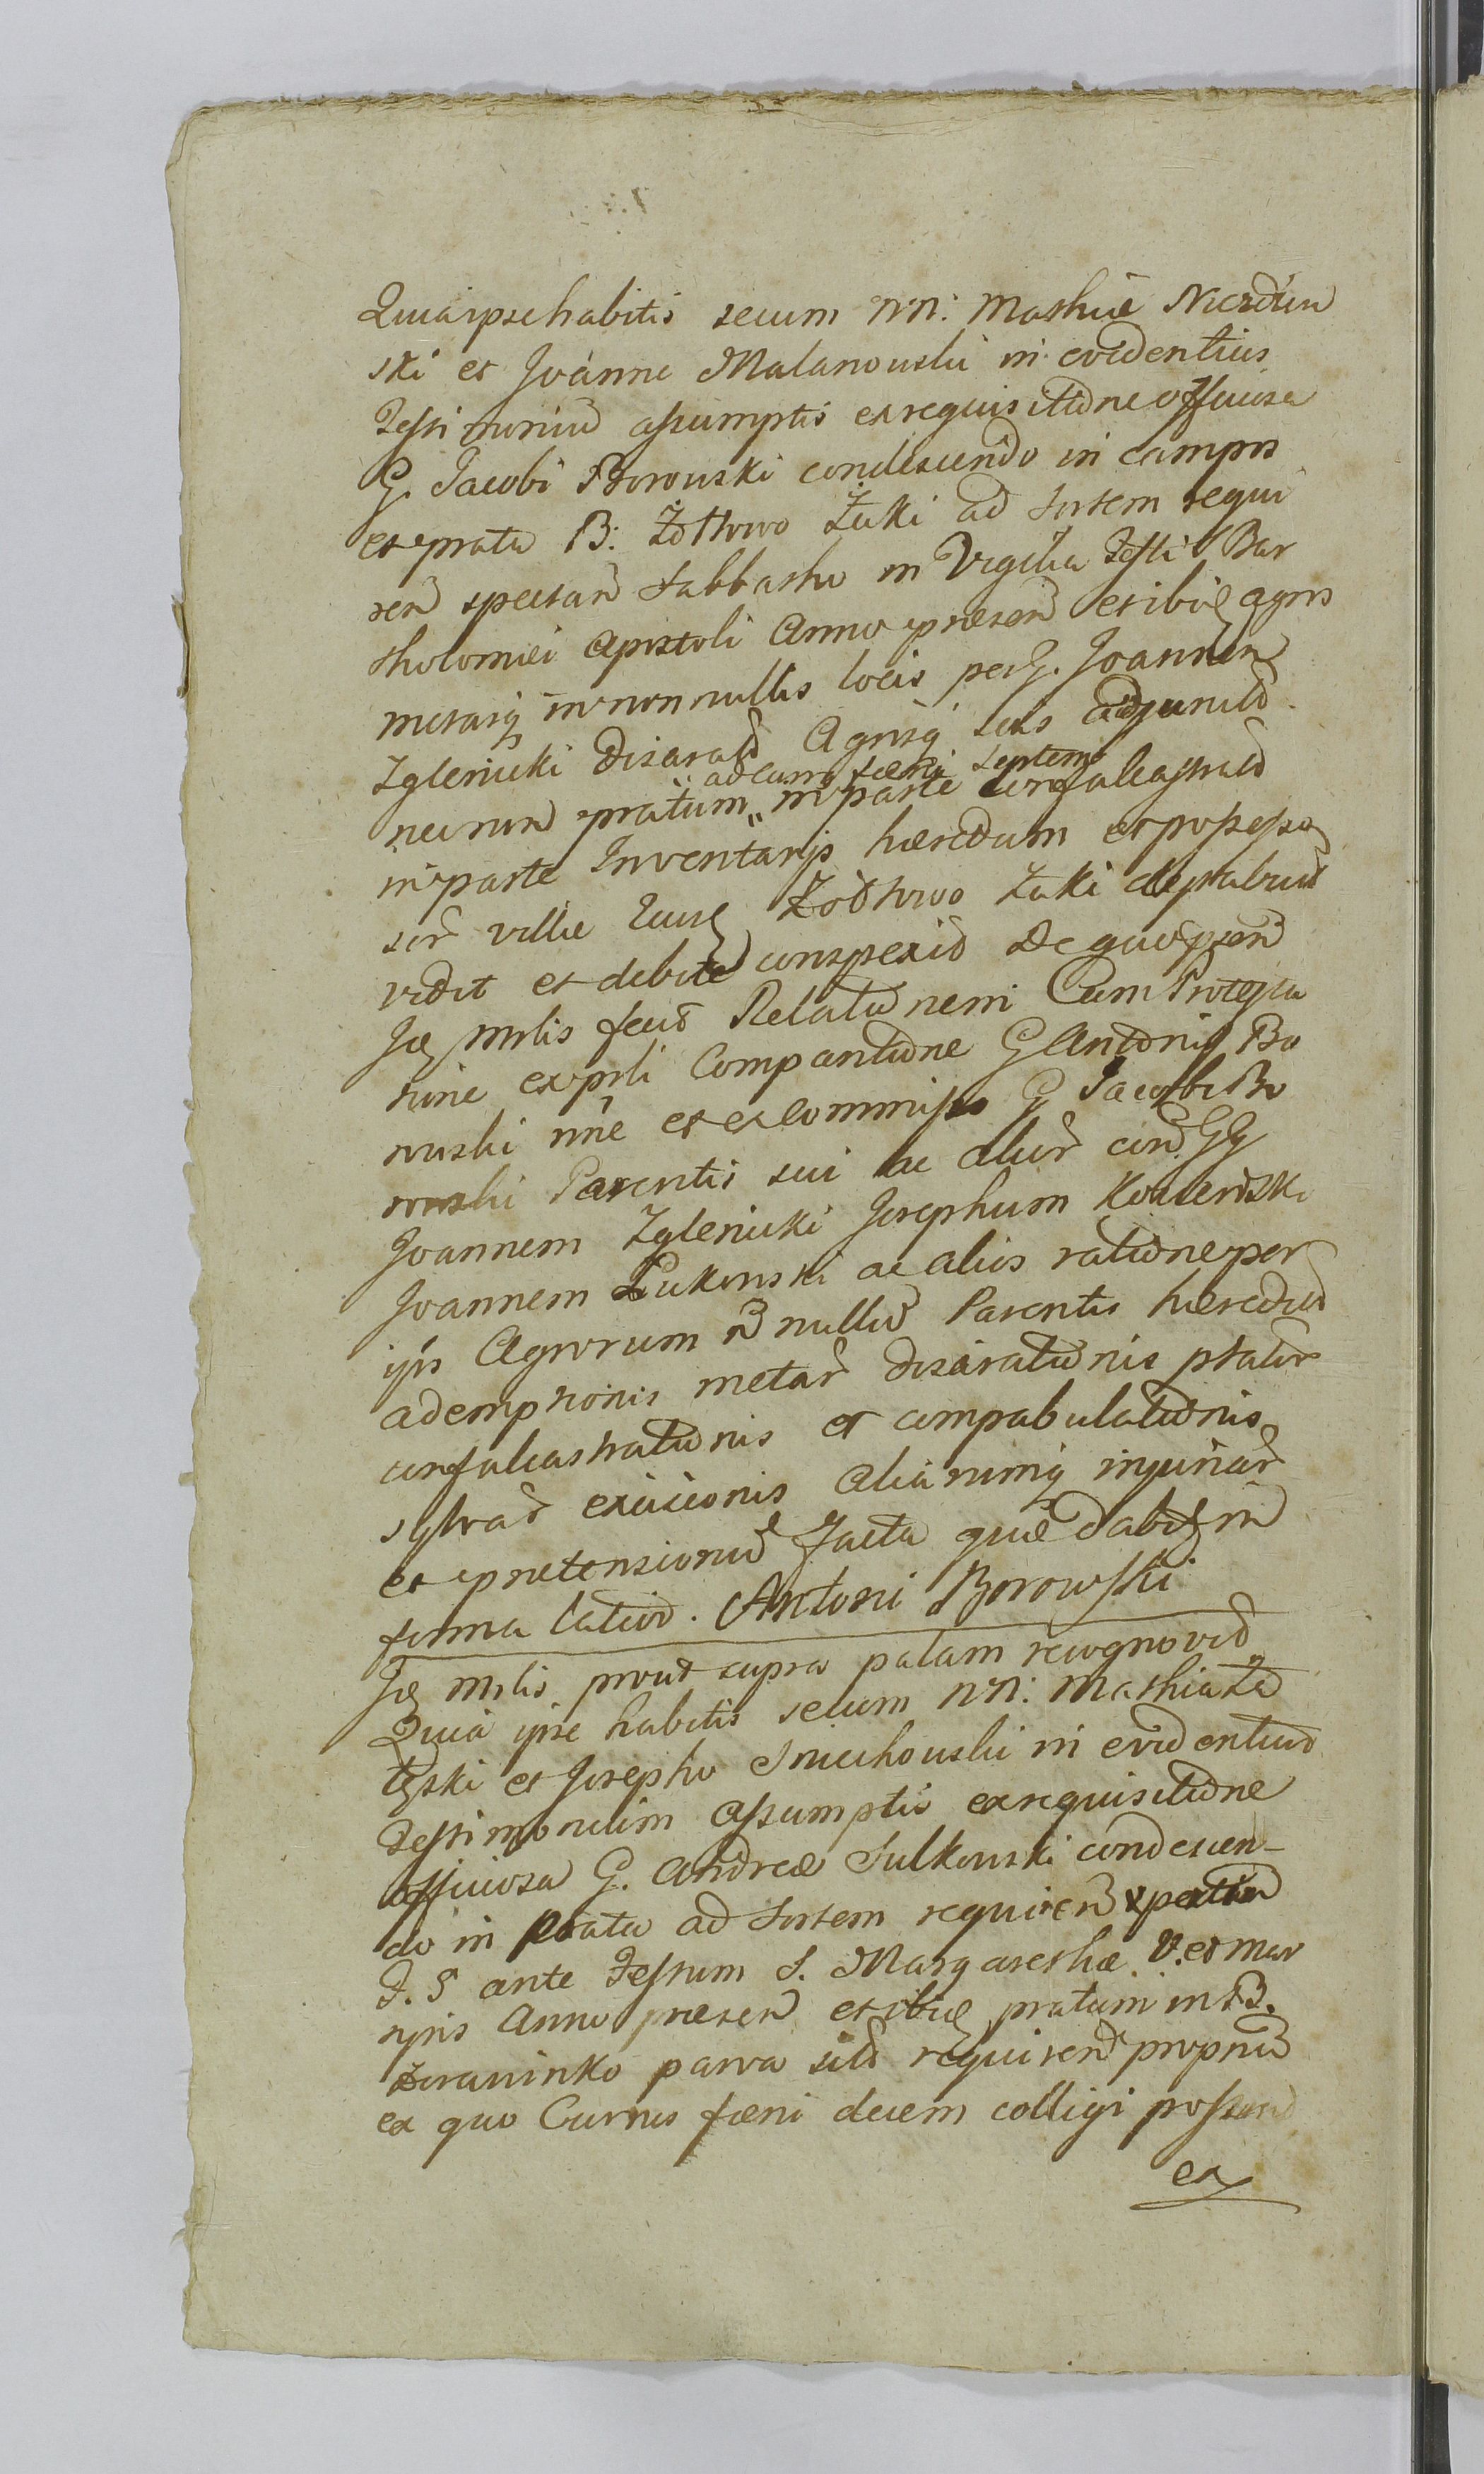 Quia ipse habitis secum nn: Mathiæ Nierdzin
ski et Joanne Malanouski in evidentius
Testimoniũ assumptis ex requisitione officiosa
G. Jacobi Borouski condescendo in campos
et prata B: Żółtowo Żuki ad sortem requi
ren̄ spectan̄ Sabbatho in Vigilia Festi Bar
tholomæi Apostoli Anno præsen̄ et ibiq agros
metasq in nonnullis locis per G. Joannem
Zglenicki disarat̄ Agrisq suis adjunct̄
necnon pratum in parte confalcastrat̄
ad currꝯ fœni septem
in parte Inventarijs hæredum et possesso
ror̄ villæ Ejusq Żółtowo Żuki depabulat̄
vidit et debite conspexit De quo ipsem̄
Jq mlis fecit Relationem Cum Protesta
tione ex prli Comparitione G Antonij Bo
rouski nne et ex commisso G Jacobi Bo
rouski Parentis sui ac alior̄ con̄ GG
Joannem Zglenicki Josephum
Joannem Łukouski ac alios ratione per
ipsos Agrorum nullũ Parentis hæredũ
ademptionis metar̄ disarationis prator̄
confalcastrationis et compabulationis
sylvar̄ excisionis aliarumq injuriar̄
et prætensionũ facta quæ dabitq in
forma latiori. Antoni Borowski
Jq mlis prout supra palam recognovit
Quia ipse habitis secum nn: Mathia
et Josepho Smiechouski in evidentius
Testimonium assumptis ex requisitione
officiosa G. Andreæ Sulkouski condescen-
do in prata ad sortem requiren̄ spectan̄
F. 5 ante Festum S. Margarethæ V. et Mar
tyris Anno præsen̄ et ibiq pratum in B.
parva sit̄ requiren̄ propriũ
ex quo Currus fœni decem colligi possunt
ex